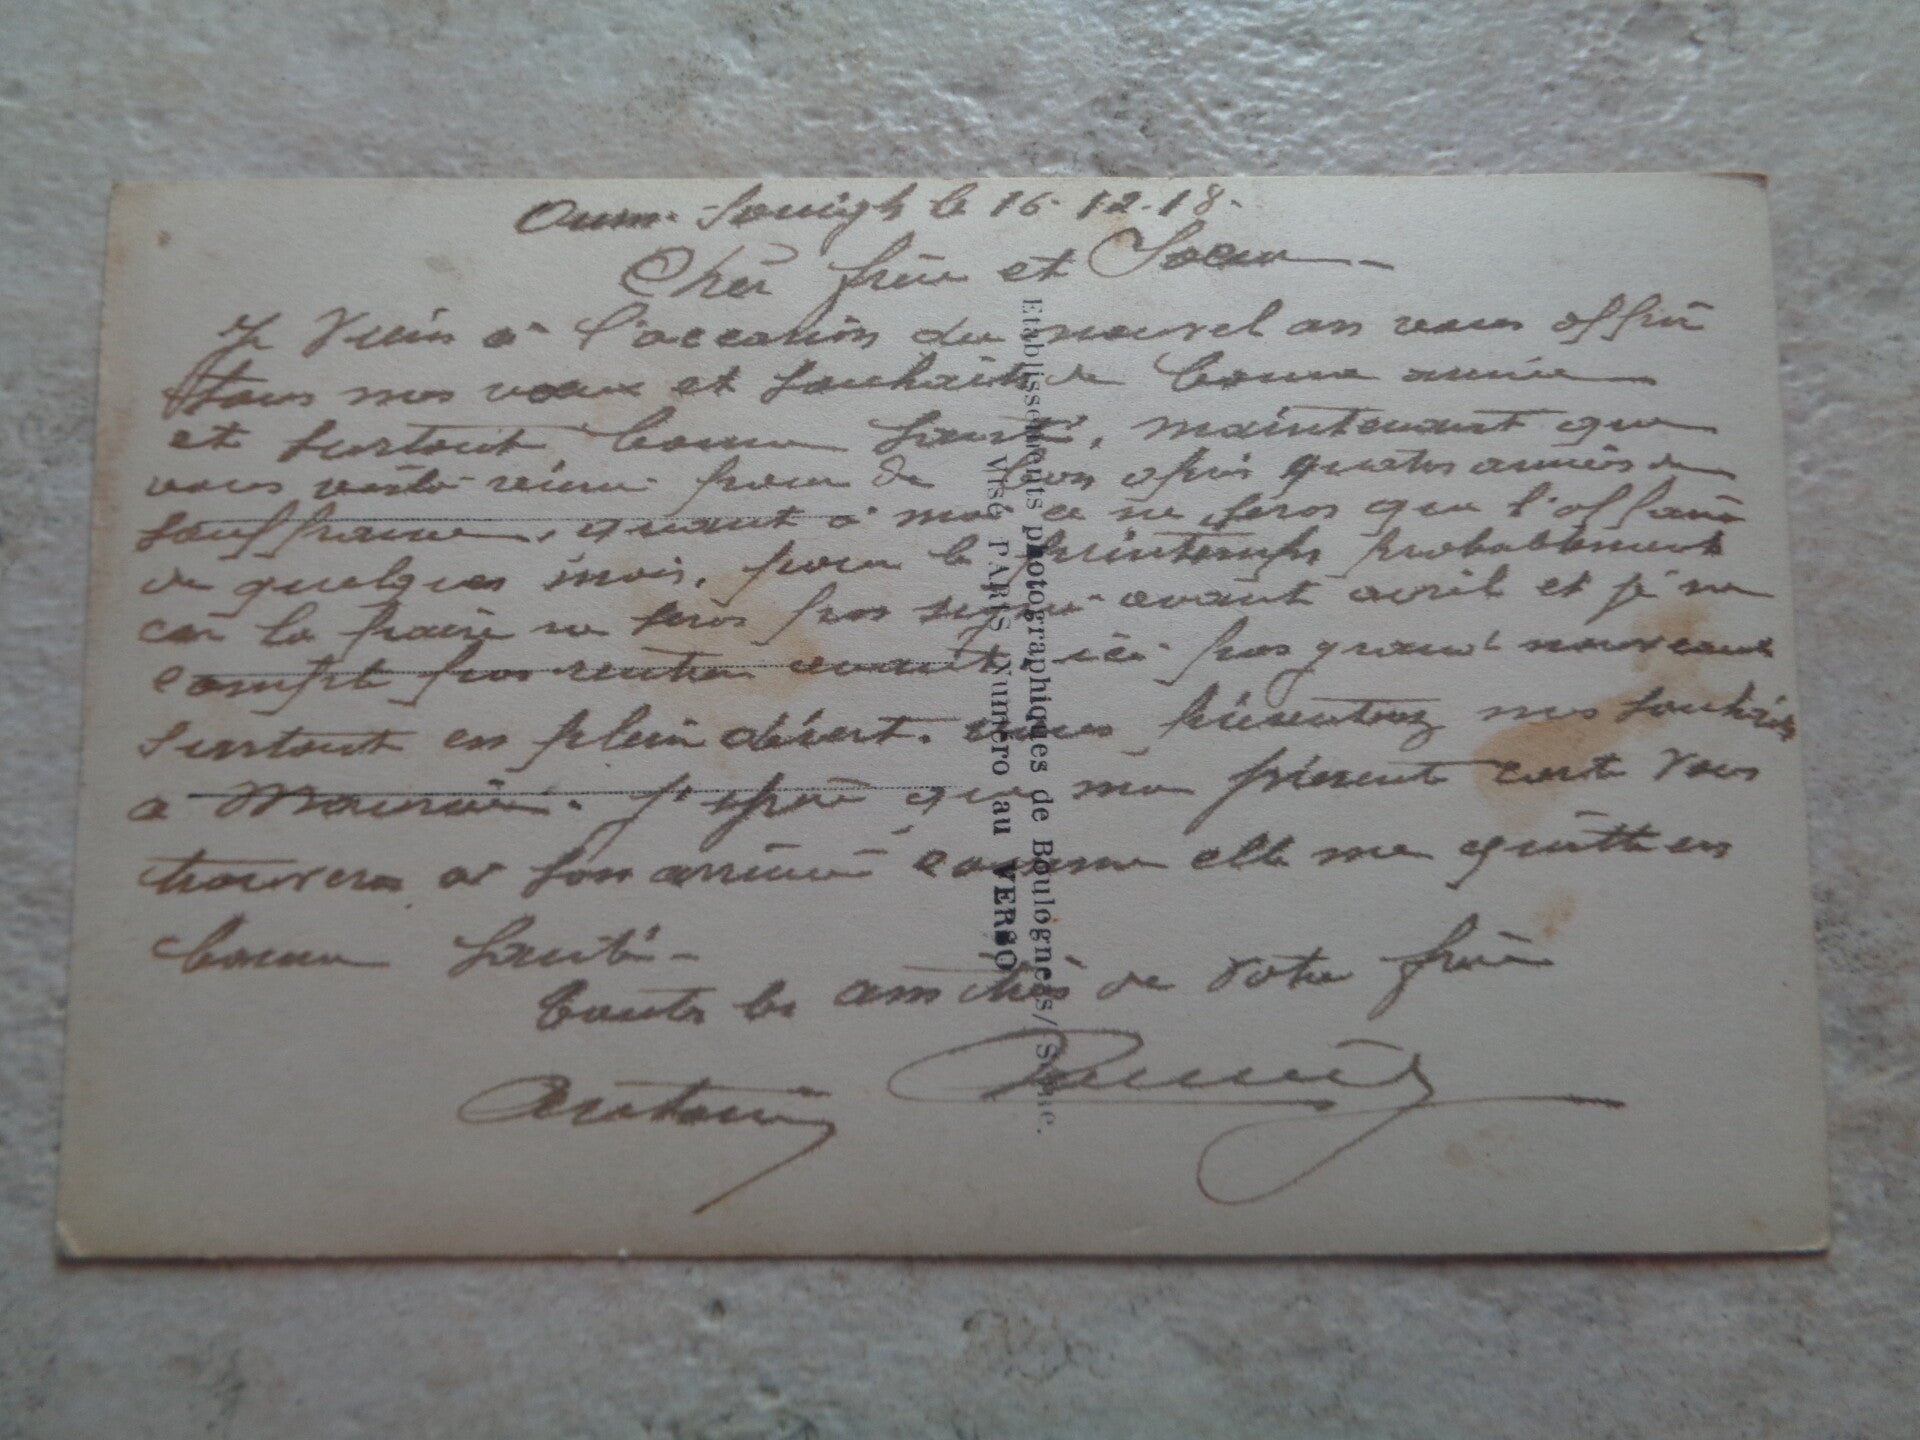 Oum-Souigh le 16-12-18-
Cher frère et Soeur
Je Viens a l'occasion du nouvel an vous offrir
tous mes voeux et souhaits de bonne année
et surtout bonne santé, maintenant que
vous voilà réuni pour de bon apris quatre années de
souffrance, quant à moi ce ne seras que l'affaire
de quelques mois, pour le printemps probablement
car la paix ne seras pas signé avant avril et je ne
compte pas rentrer avant ici pas grand nouveauté
surtout en plein désert. vous présenterez mes souhaits
a Maurice. J'espère que ma présente carte Vous
trouveras a son arrivée comme elle me quitte en
bonne santé-
toutes les amitiés de Votre frère
Antonin
Etablissements photographiques de Boulogne s/ Seine.
Visé PARIS Numéro au VERSO